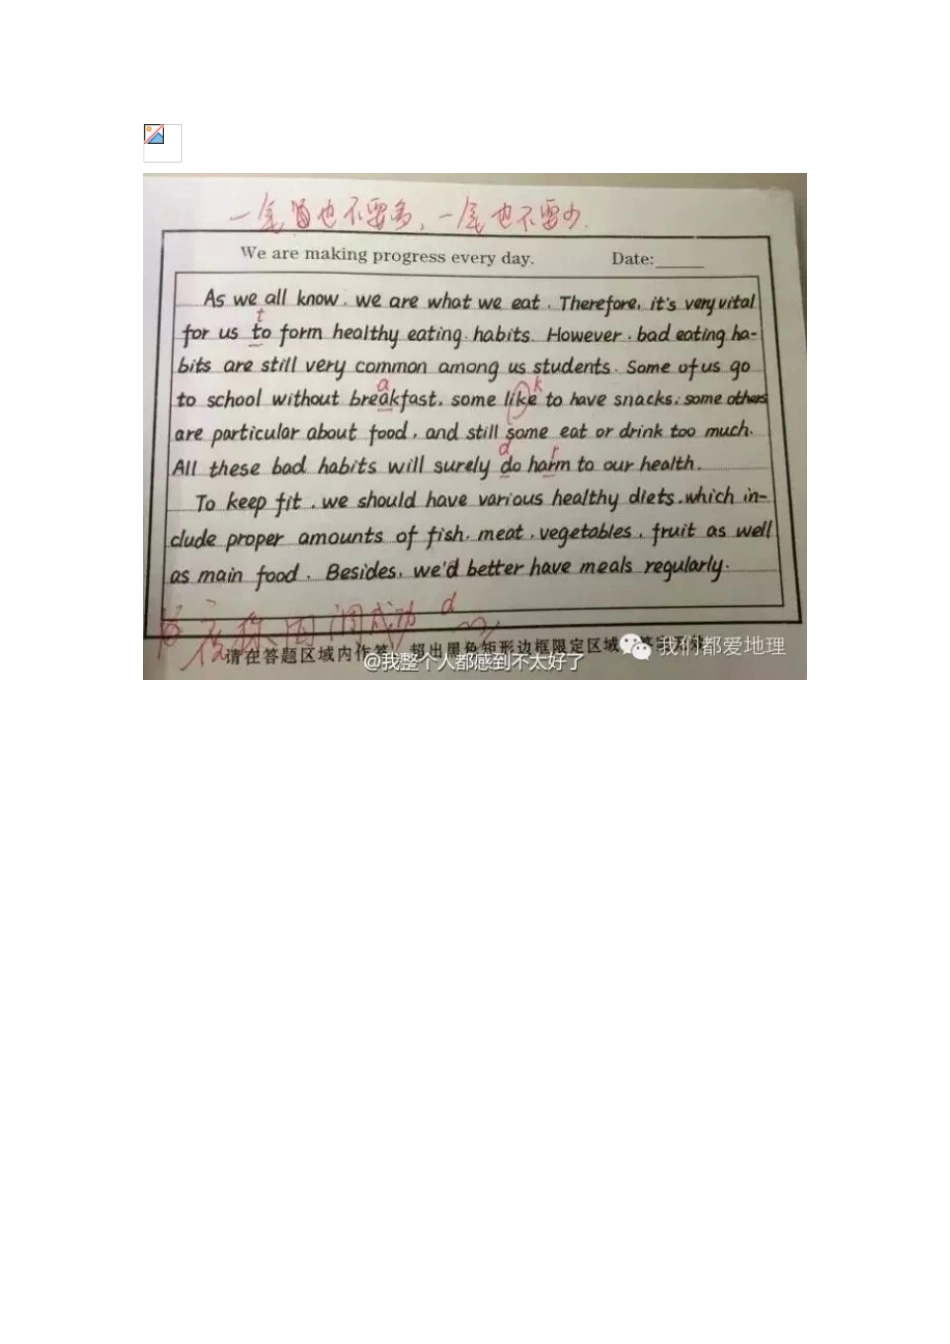 一尾也不要多，一尾也不要少.
We are making progress every day. Date:______
As we all know, we are what we eat. Therefore, it's very vital
t
for us to form healthy eating habits. However, bad eating ha-
bits are still very common among us students. Some of us go
a k
to school without breakfast, some like to have snacks, some others
are particular about food, and still some eat or drink too much.
d r
All these bad habits will surely do harm to our health.
To keep fit, we should have various healthy diets, which in-
clude proper amounts of fish, meat, vegetables, fruit as well
as main food. Besides, we'd better have meals regularly.
成功 d
请在答题区域内作答，超出黑色矩形边框限定区域
我们都爱地理
@我整个人都感到不太好了